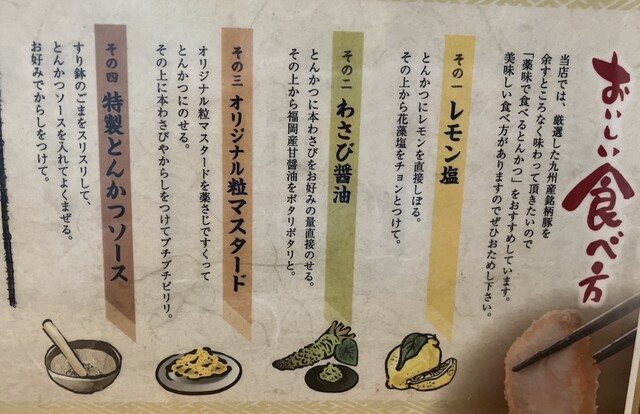 おいしい食べ方
当店では、厳選した九州産銘柄豚を
余すところなく味わって頂きたいので
「薬味で食べるとんかつ」をおすすめしています。
美味しい食べ方がありますのでぜひおためし下さい。
その一 レモン塩
とんかつにレモンを直接しぼる。
その上から花藻塩をチョンとつけて。
その二 わさび醤油
とんかつに本わさびをお好みの量直接のせる。
その上から福岡産甘醤油をポタリポタリと。
その三 オリジナル粒マスタード
オリジナル粒マスタードを薬さじですくって
とんかつにのせる。
その上に本わさびやからしをつけてプチプチピリリ。
その四 特製とんかつソース
すり鉢のごまをスリスリして、
とんかつソースを入れてよくまぜる。
お好みでからしをつけて。